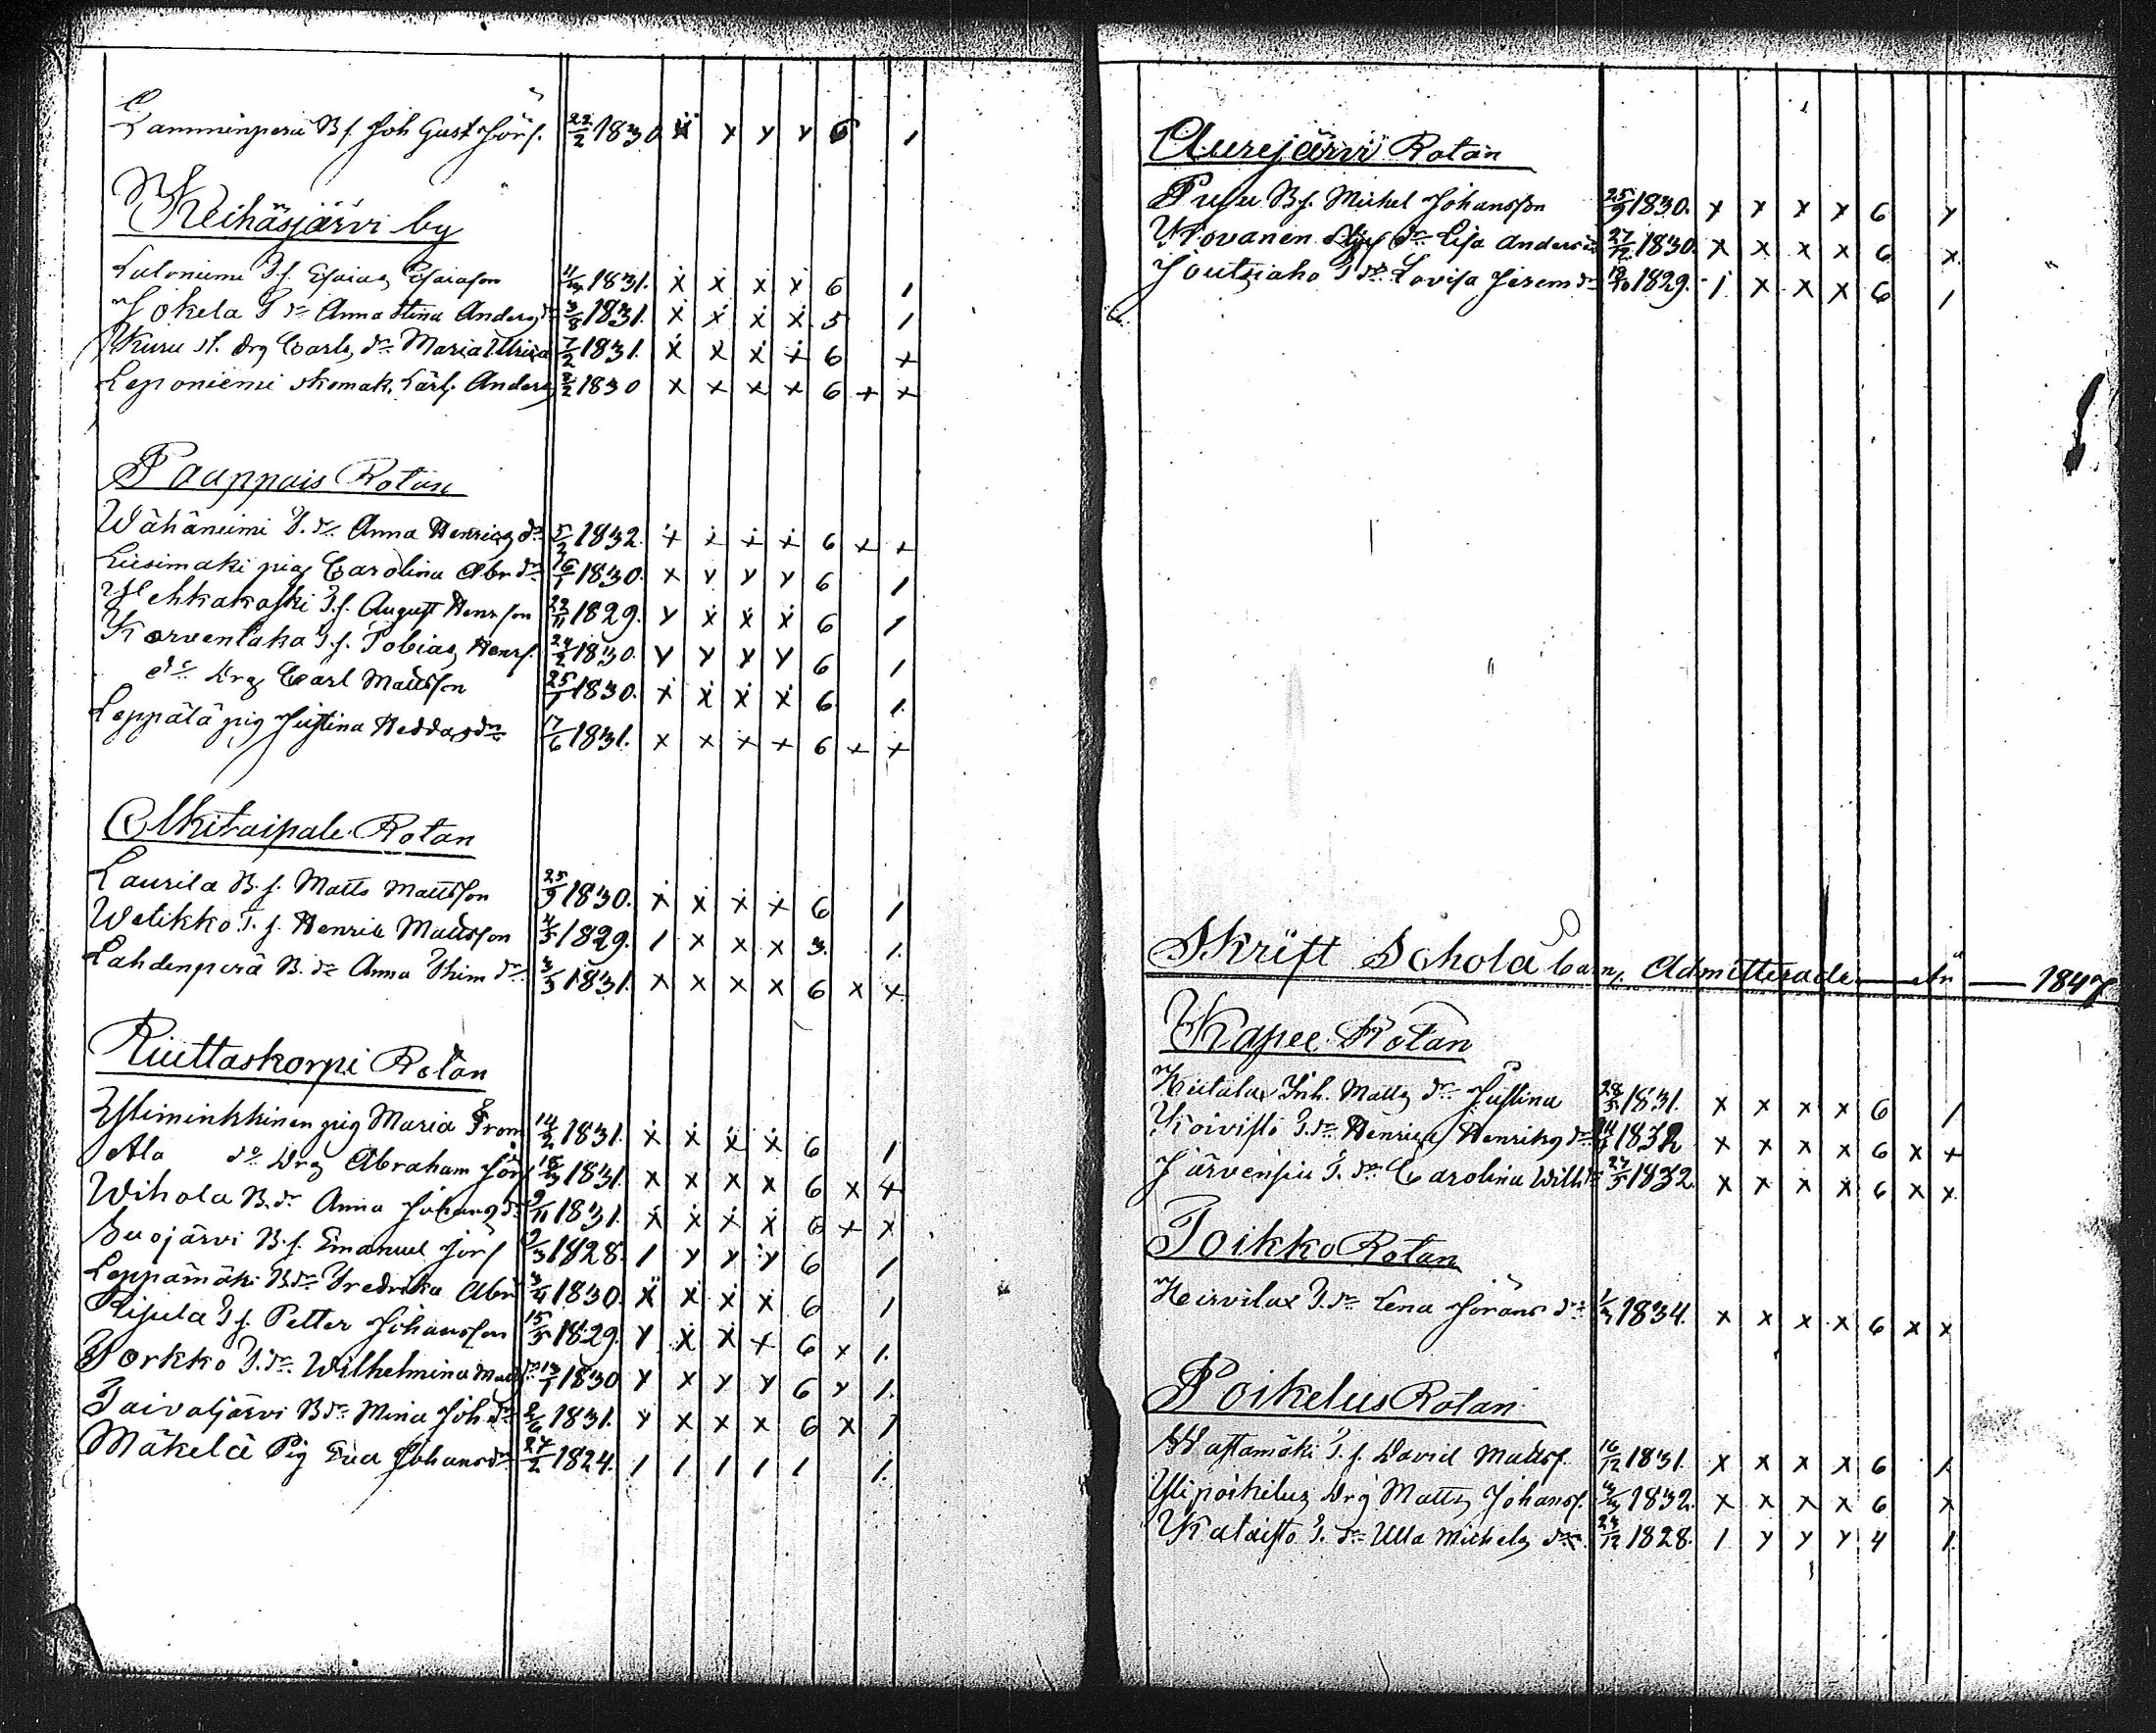 Lamminperä B.s. Joh Gust Jörs. 22/2 1830 x y y y 6 1
Keihäsjärvi by
Laloniemi T.s. Esaias Esaiason 11/3 1831. x x x x 6 1
Jokela T dr Anna Stina Anders dr 3/8 1831. x x x x 5 1
Kuru st. drg Carls dr Maria Ulrica 7/2 1831. x x x x 6 x
Leponiemi skomak. Lärl. Anders 2/2 1830 x x x x 6 x x
Pauppais Rotan
Wähäniemi T. dr Anna Henrics dr 5/2 1832. x x x x 6 x x
Liisimäki pig Carolina Abr dr 16/1 1830. x y y y 6 1
Wehkakoski T.s. August Henrsson 22/11 1829. y x x x 6 1
Korventaka T.s. Tobias Henrs. 24/2 1830. y y y y 6 1
do Drg Carl Mattsson 25/1 1830. x x x x 6 1.
Leppälä pig Justina Hedda dr 17/6 1831. x x x x 6 x x
Alkitaipale Rotan
Laurila B.s. Matts Mattsson 25/9 1830. x x x x 6 1
Welikko T.s. Henric Mattsson 4/5 1829. 1 x x x 3. 1.
Lahdenperä B. dr Anna Thim dr 3/3 1831. x x x x 6 x x
Riuttaskorpi Rotan
Yliminkkinen pig Maria From 14/2 1831. x x x x 6 1
Ala do Drg Abraham Jörs 18/3 1831. x x x x 6 x 4
Wihola B. dr Anna Johans dr 9/11 1831. x x x x 6 x x
Suojärvi B.s. Emanuel Jörs 9/3 1828. 1 y y y 6 1
Leppämäki B dr Fredrika Abr 3/4 1830. x x x x 6 1
Pijula T.s. Petter Johansson 15/5 1829. y x x x 6 x 1.
Porkko T. dr Wilhelmina Matts dr 13/1 1830 y x y y 6 y 1.
Taivaljärvi B dr Mina Joh dr 2/6 1831. y x x x 6 x 1
Mäkelä Pig Eva Johans dr 27/2 1824. 1 1 1 1 1 1.
Aurejärvi Rotan
Pusu B.s. Michel Johansson 25/9 1830. x x x x 6 y
Kovanen dr Lisa Anders dr 27/12 1830. x x x x 6 x
Joutsiaho T dr Lovisa Jerem dr 18/10 1829. 1 x x x 6 1
Skrift Schola barn, Admitterade — År — 1847
Kapee Rotan
Hiitala Inh. Matts dr Justina 28/5 1831. x x x x 6 1
Koivisto T. dr Henrica Henriks dr 1832 x x x x 6 x x
Järvensiu T. dr Carolina Wilh dr 27/5 1832. x x x x 6 x x
Poikko Rotan
Heirvilax T. dr Lena Jörans dr 1/3 1834. x x x x 6 x x
Poikelus Rotan
Wastamäki T.s. David Mattss. 16/12 1831. x x x x 6 1.
Ylipoikelus Drg Matts Johanss. 3/3 1832. x x x x 6 x
Kataisto T. dr Ulla Michels dr 23/12 1828. 1 y y y 4 1.